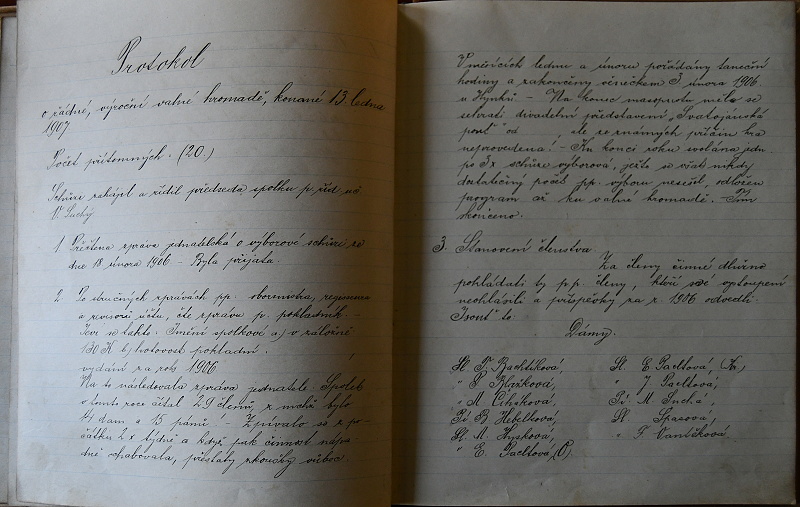 Protokol
o řádné, výroční valné hromadě, konané 13. ledna
1907
Počet přítomných: (20.)
Schůzi zahájil a řídil předseda spolku p. říd. uč.
V. Suchý.
1 Přečtena zpráva jednatelská o výborové schůzi ze
dne 18 února 1906 – Byla přijata.
2. Po stručných zprávách pp. sbormistra, regenseura
a revisorů účtů, čte zprávu p. pokladník. –
Jmění spolkové a) v záložně
130 K b) hotovost pokladní:
vydání za rok 1906
Na to následovala zpráva jednatele. Spolek
v tomto roce čítal 29 členů, z nichž bylo
14 dam a 15 pánů! – Zpívalo se z po-
čátku 2 x týdně a když pak činnost nápa-
dně ochabovala, přestaly zkoušky vůbec.
V měsících lednu a únoru pořádány taneční
hodiny a zakončeny věnečkem 3. února 1906
u Hynků. – Na konec masopustu mělo se
sehrati divadelní představení „Svatojanská
pouť" od , ale ze známých příčin hra
neprovedena! – Ku konci roku svolána jedn.
po 3x schůze výborová, ježto se však nikdy
dostatečný počet pp. výboru nesešel, odložen
program až ku valné hromadě. Tím
skončeno.
3. Stanovení členstva.
Za členy činné dlužno
pokládati ty pp. členy, kteří své vystoupení
neohlásili a příspěvky za r. 1906 odvedli.
Jsouť to:
Dámy.
Sl. F. Bachtíková, Sl. E. Pacltová, (K.)
" Blažková, " J. Pacltová,
" M. Ciháková, Pí. M. Suchá,
Pí B. Hebelková, Sl. Spasová,
Sl. M. Hynková, " F. Vaníčková
" E. Pacltová, (O.)